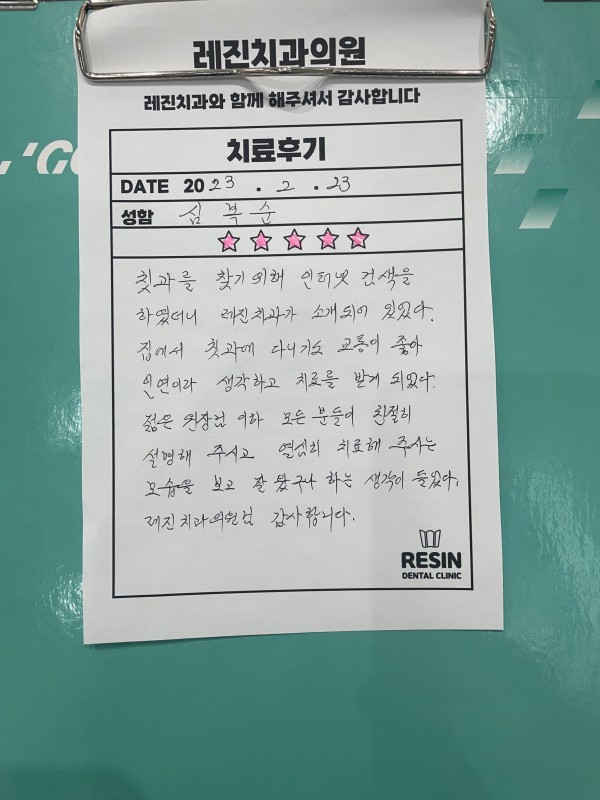 레진치과의원
레진치과와 함께 해주셔서 감사합니다
치료후기
DATE 2023 . 2 . 23
성함 심복순
칫과를 찾기 위해 인터넷 검색을
하였더니 레진치과가 소개되어 있었다.
집에서 칫과에 다니기도 교통이 좋아
인연이라 생각하고 치료를 받게 되었다.
젊은 원장님 이하 모든 분들이 친절히
설명해 주시고 열심히 치료해 주시는
모습을 보고 잘 왔구나 하는 생각이 들었다.
레진치과의원님 감사합니다.
RESIN
DENTAL CLINIC